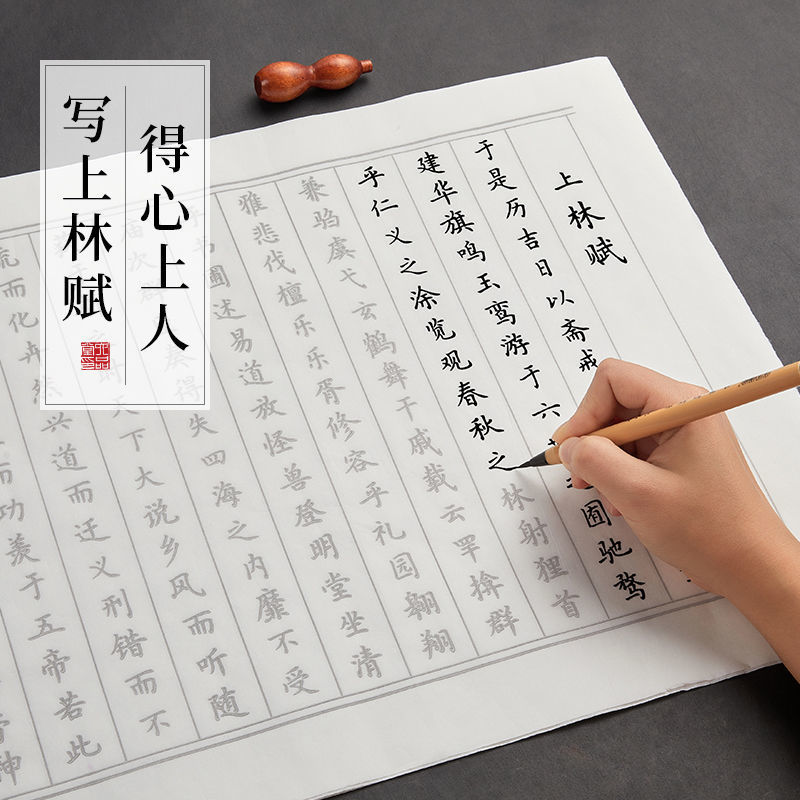 写上林赋
得心上人
上林赋
于是历吉日以斋戒
建华旗鸣玉鸾游于六艺之囿驰骛
乎仁义之涂览观春秋之林射狸首
兼驺虞弋玄鹤舞干戚载云罕揜群
雅悲伐檀乐乐胥修容乎礼园翱翔
乎书圃述易道放怪兽登明堂坐清
庙次群奏得失四海之内靡不受
时天下大说乡风而听随
流而化卉然兴道而迁义刑错而不
而功羡于五帝若此
神